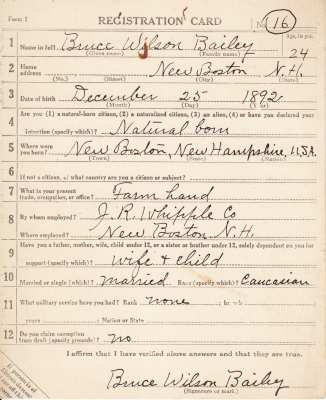 Form 1
REGISTRATION CARD No. 16
1 Name in full Bruce Wilson Bailey Age, in yrs.
(Given name) (Family name) 24
2 Home address New Boston N.H.
(No.) (Street) (City) (State)
3 Date of birth December 25 1892
(Month) (Day) (Year)
4 Are you (1) a natural-born citizen, (2) a naturalized citizen, (3) an alien, (4) or have you declared your
intention (specify which)? Natural born
5 Where were you born? New Boston, New Hampshire, U.S.A.
(Town) (State) (Nation)
6 If not a citizen, of what country are you a citizen or subject?
7 What is your present trade, occupation, or office? Farm hand
8 By whom employed? J. R. Whipple Co
Where employed? New Boston, N.H.
9 Have you a father, mother, wife, child under 12, or a sister or brother under 12, solely dependent on you for
support (specify which)? wife & child
10 Married or single (which)? Married Race (specify which)? Caucasian
11 What military service have you had? Rank none ; branch
years ; Nation or State
12 Do you claim exemption from draft (specify grounds)? no
I affirm that I have verified above answers and that they are true.
Bruce Wilson Bailey
(Signature or mark)
If person is
of African
descent,